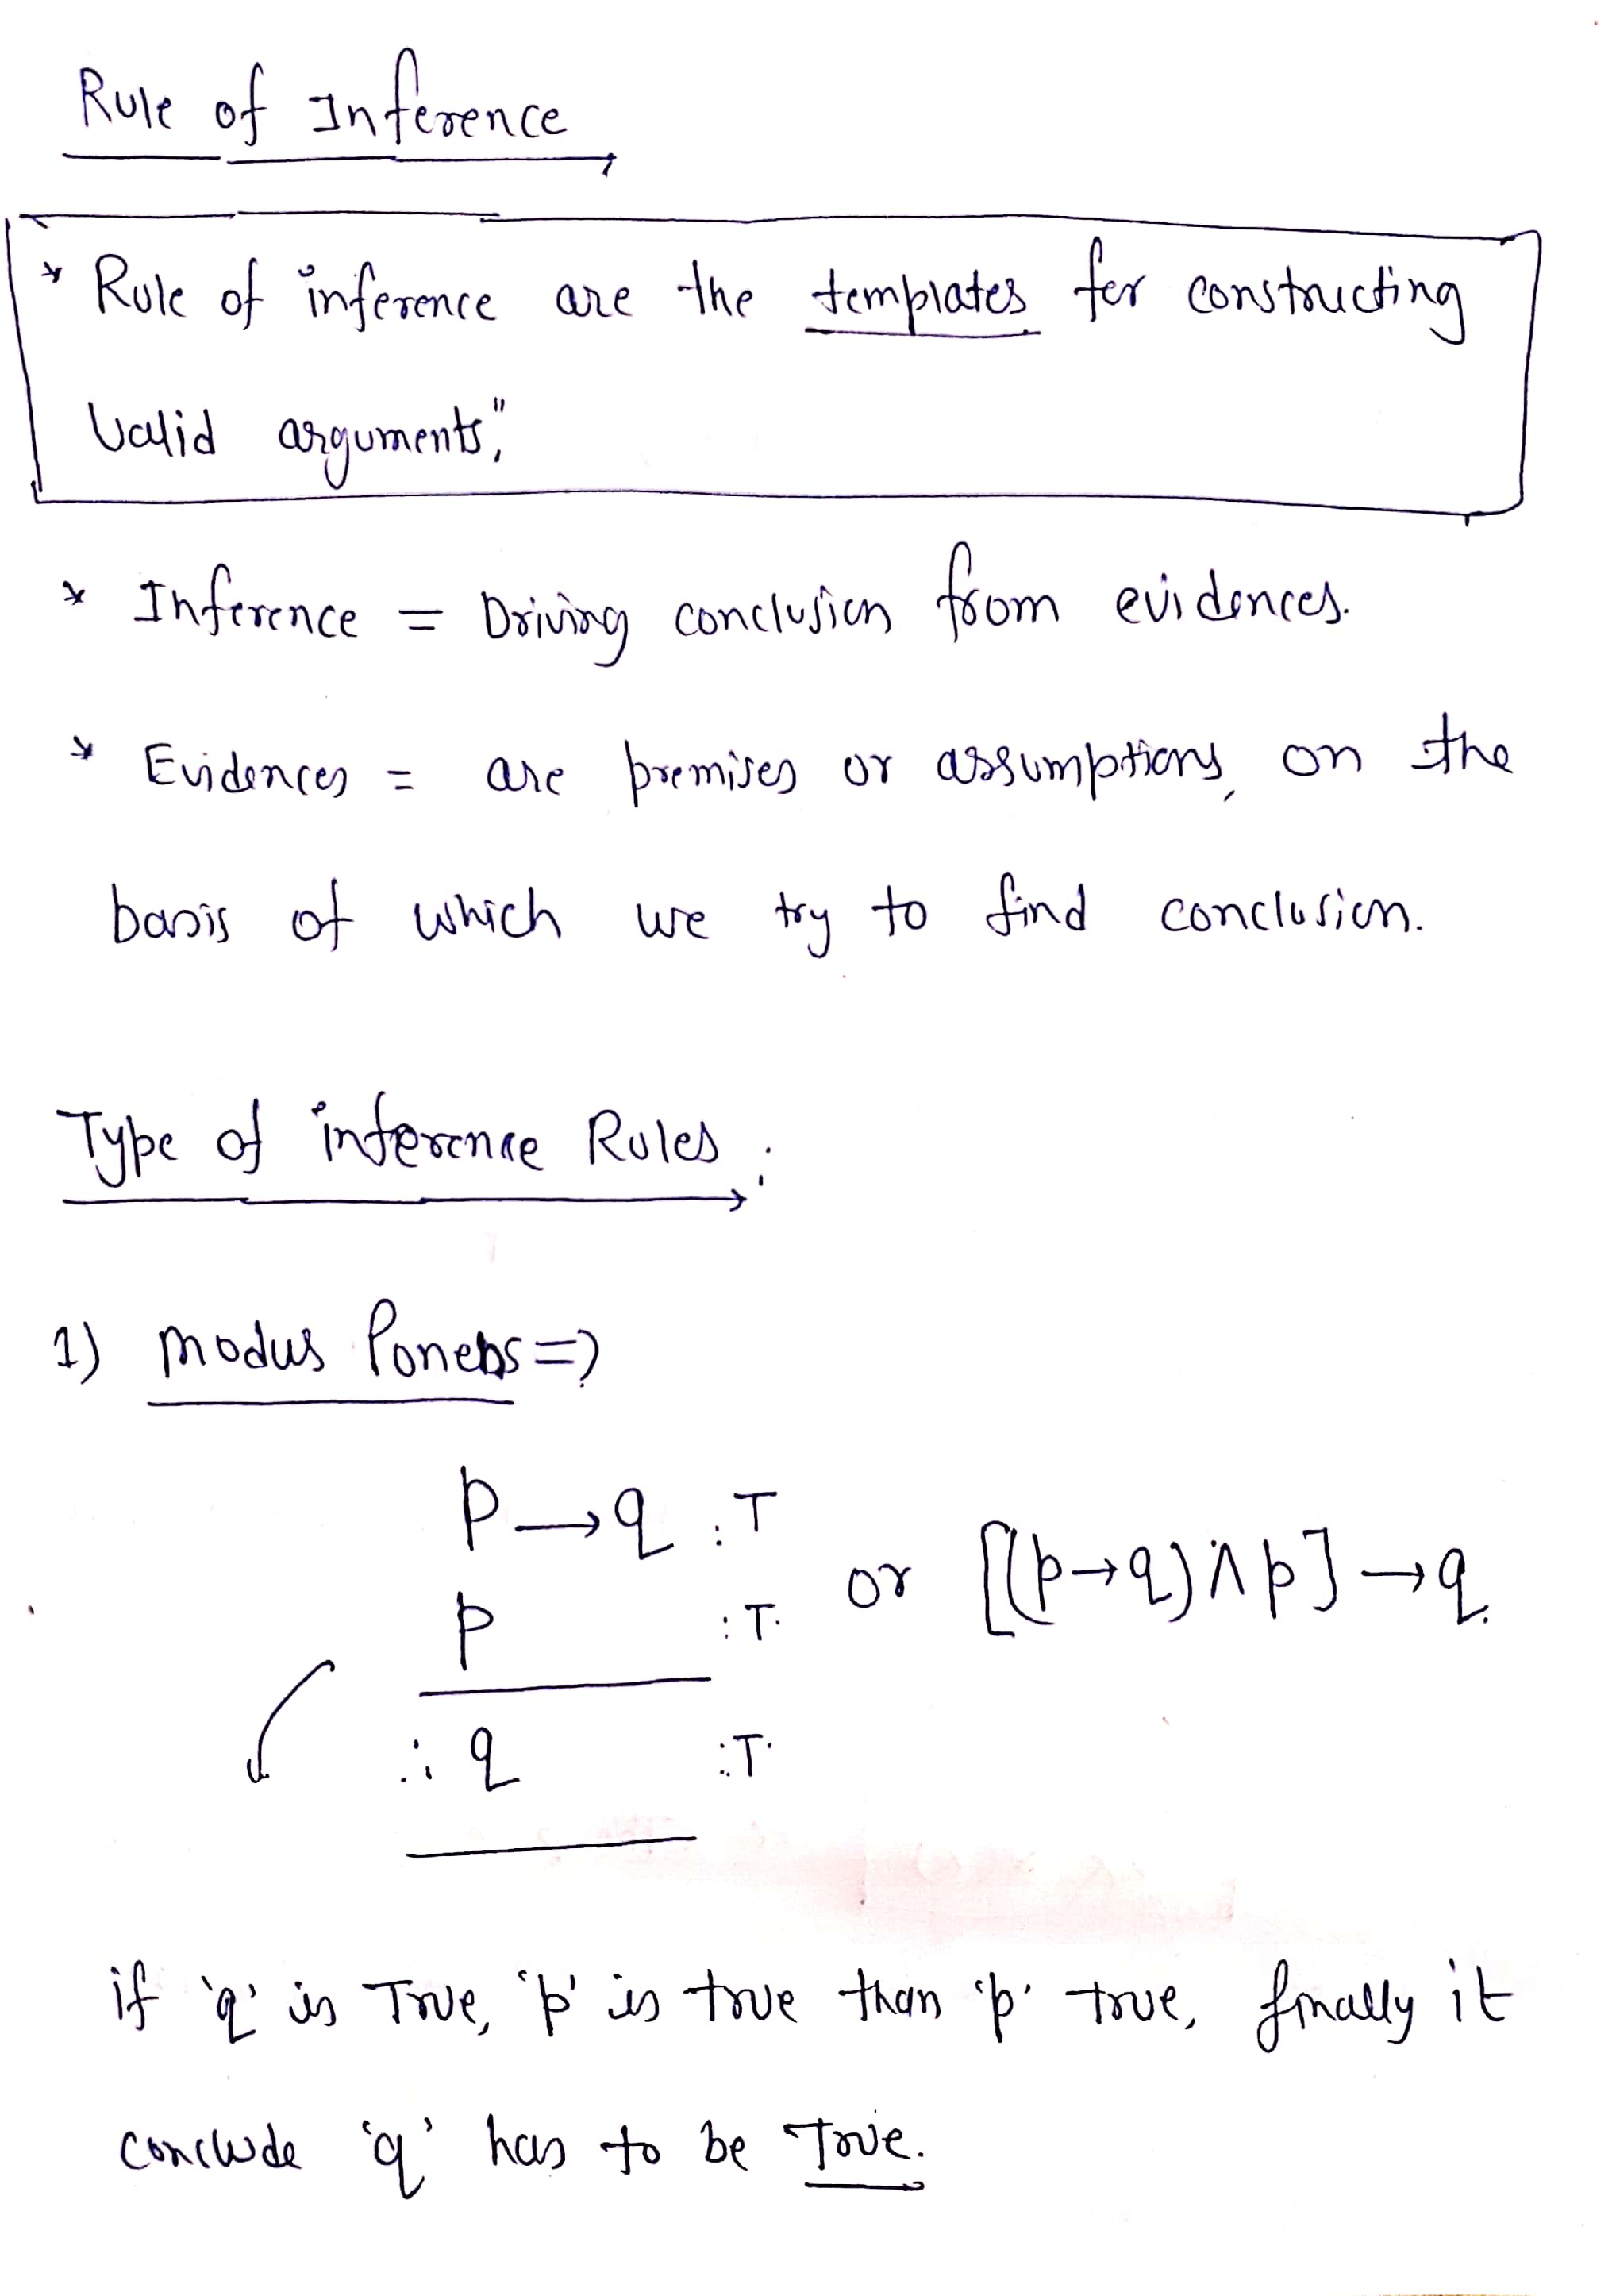 Rule of Inference
* Rule of inference are the templates for constructing
Valid arguments,"
* Inference = Driving conclusion from evidences.
* Evidences = are premises or assumptions, on the
basis of which we try to find conclusion.
Type of inference Rules :
1) Modus Ponens =>
p → q : T
p : T.
or [(p→q)∧p] → q.
∴ q : T.
if 'q' is True, 'p' is true than 'p' true, finally it
conclude 'q' has to be True.